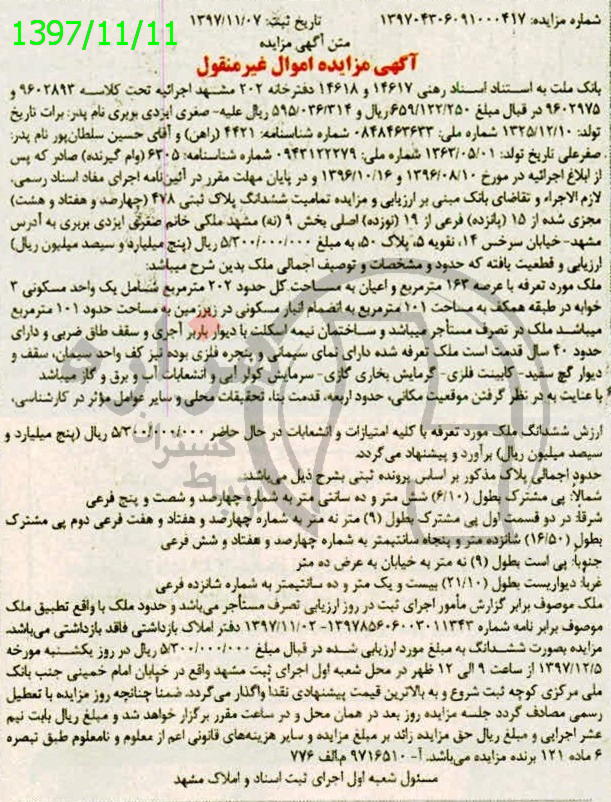 شماره مزایده: ۱۳۹۷۰۴۳۰۶۰۹۱۰۰۰۴۱۷ تاریخ ثبت: ۱۳۹۷/۱۱/۰۷
1397/11/11
متن آگهی مزایده
آگهی مزایده اموال غیرمنقول
بانک ملت به استناد اسناد رهنی ۱۴۶۱۷ و ۱۴۶۱۸ دفترخانه ۲۰۲ مشهد اجرائیه تحت کلاسه ۹۶۰۲۸۹۳ و
۹۶۰۲۹۷۵ در قبال مبلغ ۶۵۹/۱۲۲/۲۵۰ریال و ۵۹۵/۰۳۶/۳۱۴ ریال علیه- صغری ایزدی بربری نام پدر: برات تاریخ
تولد: ۱۳۲۵/۱۲/۱۰ شماره ملی: ۰۸۴۸۴۶۳۶۳۳ شماره شناسنامه: ۴۴۲۱ (راهن) و آقای حسین سلطان‌پور نام پدر:
صفرعلی تاریخ تولد: ۱۳۶۲/۰۵/۰۱ شماره ملی: ۰۹۴۳۱۲۲۲۷۹ شماره شناسنامه: ۶۳۰۵ (وام گیرنده) صادر که پس
از ابلاغ اجرائیه در مورخ ۱۳۹۶/۰۸/۱۰ و ۱۳۹۶/۱۰/۱۶ و در پایان مهلت مقرر در آئین‌نامه اجرای مفاد اسناد رسمی،
لازم الاجراء و تقاضای بانک مبنی بر ارزیابی و مزایده تمامیت ششدانگ پلاک ثبتی ۴۷۸ (چهارصد و هفتاد و هشت)
مجزی شده از ۱۵ (پانزده) فرعی از ۱۹ (نوزده) اصلی بخش ۹ (نه) مشهد ملکی خانم صغری ایزدی بربری به آدرس
مشهد-خیابان سرخس ۱۴، نقویه ۵، پلاک ۵۰، به مبلغ ۵/۳۰۰/۰۰۰/۰۰۰ ریال (پنج میلیارد و سیصد میلیون ریال)
ارزیابی و قطعیت یافته که حدود و مشخصات و توصیف اجمالی ملک بدین شرح میباشد:
ملک مورد تعرفه با عرصه ۱۶۳ مترمربع و اعیان به مساحت کل حدود ۲۰۲ مترمربع شامل یک واحد مسکونی ۳
خوابه در طبقه همکف به مساحت ۱۰۱ مترمربع به انضمام انبار مسکونی در زیرزمین به مساحت حدود ۱۰۱ مترمربع
میباشد ملک در تصرف مستأجر میباشد و ساختمان نیمه اسکلت با دیوار باربر آجری و سقف طاق ضربی و دارای
حدود ۴۰ سال قدمت است ملک تعرفه شده دارای نمای سیمانی و پنجره فلزی بوده نیز کف واحد سیمان، سقف و
دیوار گچ سفید- کابینت فلزی- گرمایش بخاری گازی- سرمایش کولر آبی و انشعابات آب و برق و گاز میباشد
با عنایت به در نظر گرفتن موقعیت مکانی، حدود اربعه، قدمت بنا، تحقیقات محلی و سایر عوامل مؤثر در کارشناسی،
ارزش ششدانگ ملک مورد تعرفه با کلیه امتیازات و انشعابات در حال حاضر ۵/۳۰۰/۰۰۰/۰۰۰ ریال (پنج میلیارد و
سیصد میلیون ریال) برآورد و پیشنهاد می‌گردد.
حدود اجمالی پلاک مذکور بر اساس پرونده ثبتی بشرح ذیل می‌باشد:
شمالا: پی مشترک بطول (۶/۱۰) شش متر و ده سانتی متر به شماره چهارصد و شصت و پنج فرعی
شرقا: در دو قسمت اول پی مشترک بطول (۹) متر نه متر به شماره چهارصد و هفتاد و هفت فرعی دوم پی مشترک
بطول (۱۶/۵۰) شانزده متر و پنجاه سانتیمتر به شماره چهارصد و هفتاد و شش فرعی
جنوبا: پی است بطول (۹) نه متر به خیابان به عرض ده متر
غربا: دیواریست بطول (۲۱/۱۰) بیست و یک متر و ده سانتیمتر به شماره شانزده فرعی
ملک موصوف برابر گزارش مأمور اجرای ثبت در روز ارزیابی تصرف مستأجر می‌باشد و حدود ملک با واقع تطبیق ملک
موصوف برابر نامه شماره ۱۳۹۷۸۵۶۰۶۰۰۳۰۱۱۳۴۳- ۱۳۹۷/۱۱/۰۲ دفتر املاک بازداشتی فاقد بازداشتی می‌باشد.
مزایده بصورت ششدانگ به مبلغ مورد ارزیابی شده در قبال مبلغ ۵/۳۰۰/۰۰۰/۰۰۰ ریال در روز یکشنبه مورخه
۱۳۹۷/۱۲/۵ از ساعت ۹ الی ۱۲ ظهر در محل شعبه اول اجرای ثبت مشهد واقع در خیابان امام خمینی جنب بانک
ملی مرکزی کوچه ثبت شروع و به بالاترین قیمت پیشنهادی نقدا واگذار می‌گردد. ضمنا چنانچه روز مزایده با تعطیل
رسمی مصادف گردد جلسه مزایده روز بعد در همان محل و در ساعت مقرر برگزار خواهد شد و مبلغ ریال بابت نیم
عشر اجرایی و مبلغ ریال حق مزایده زائد بر مبلغ مزایده و سایر هزینه‌های قانونی اعم از معلوم و نامعلوم طبق تبصره
۶ ماده ۱۲۱ برنده مزایده می‌باشد. آ- ۹۷۱۶۵۱۰ م.الف ۷۷۶
مسئول شعبه اول اجرای ثبت اسناد و املاک مشهد